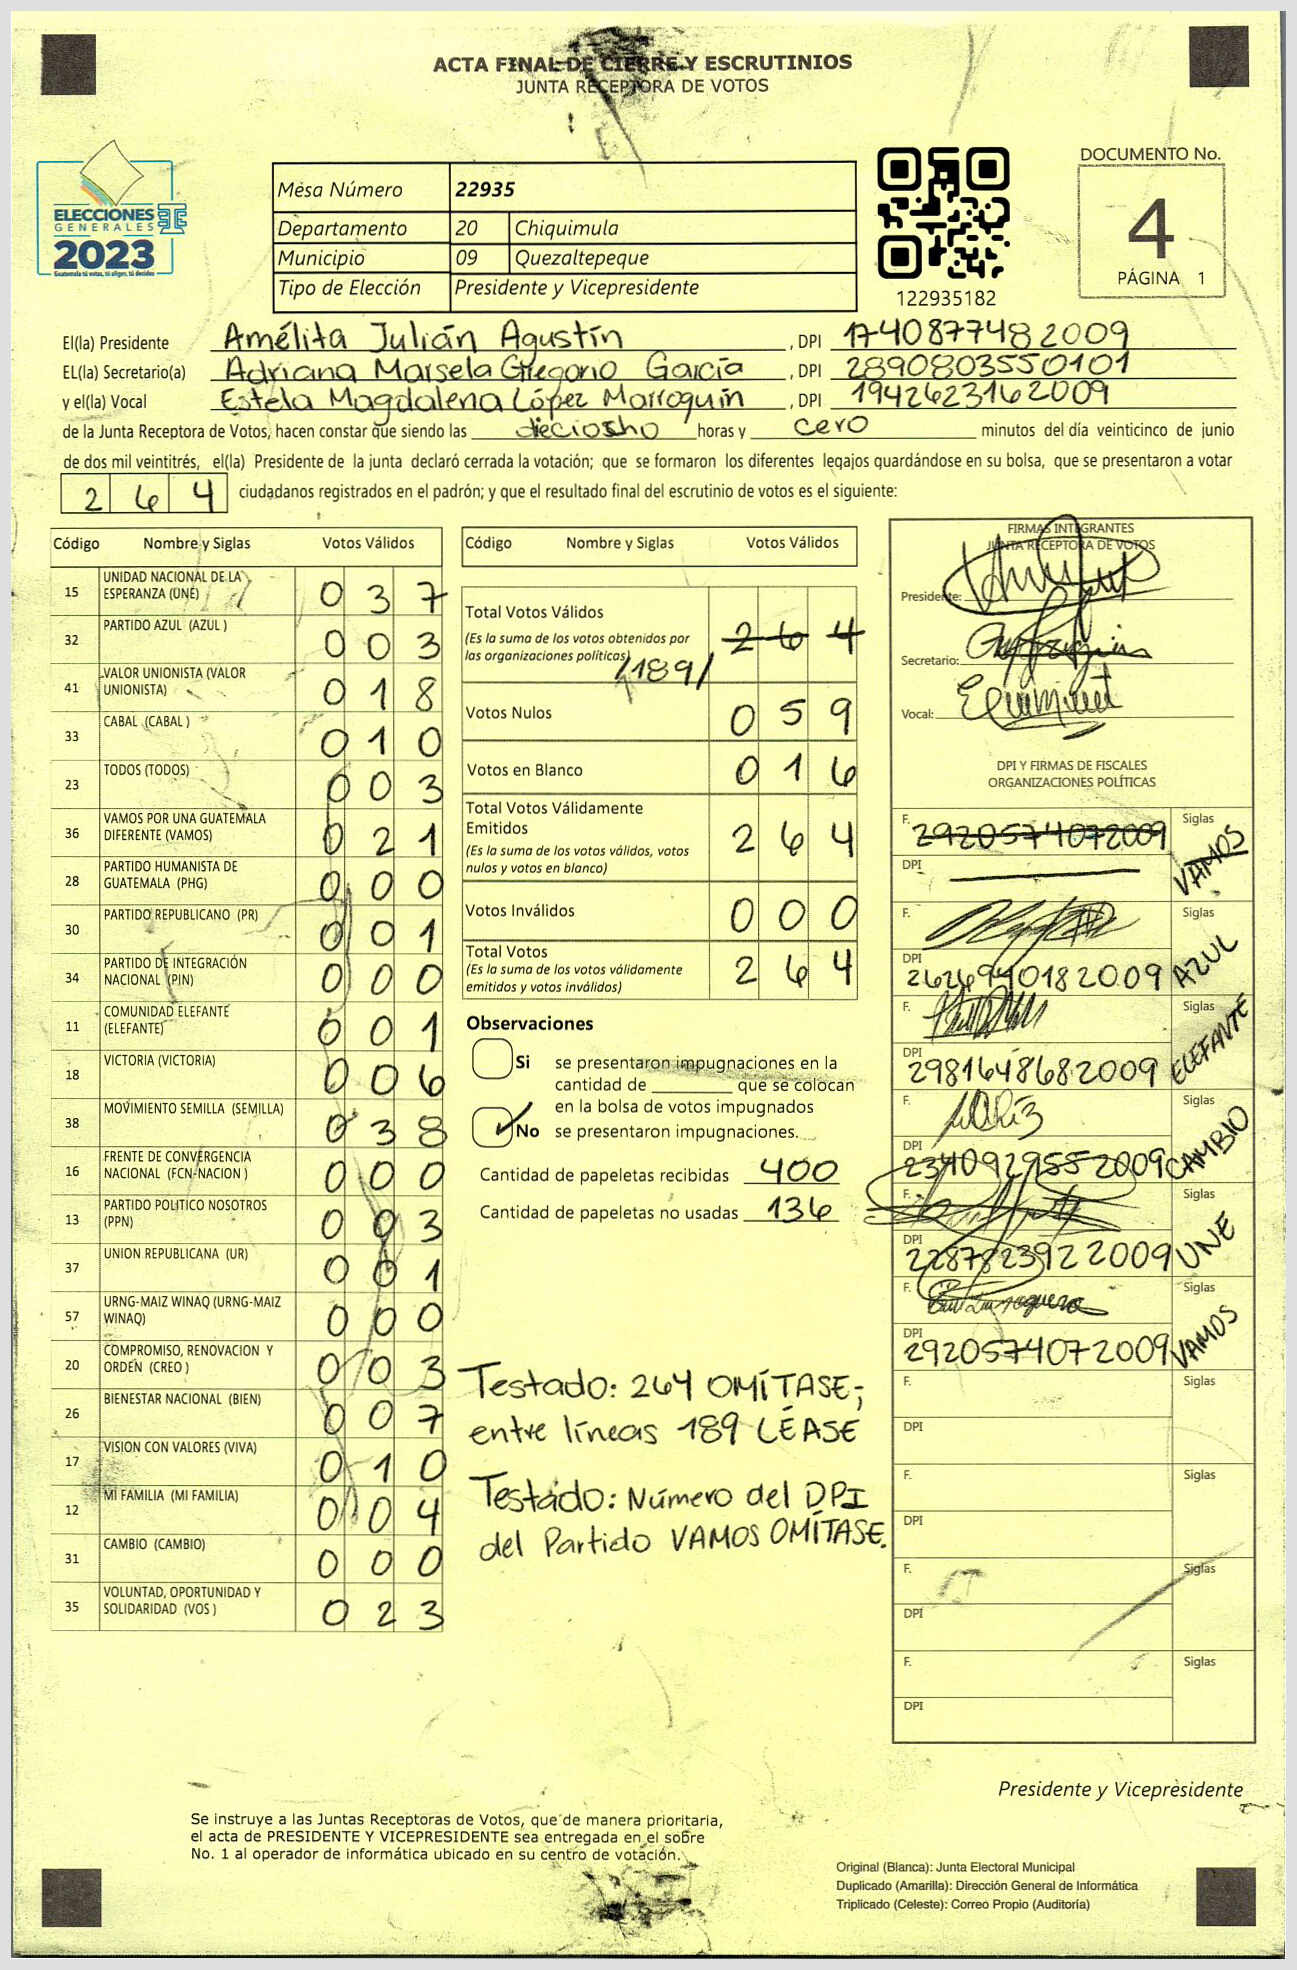 ACTA FINAL DE CIERRE Y ESCRUTINIOS
JUNTA RECEPTORA DE VOTOS
ELECCIONES
GENERALES
2023
Guatemala tú votas, tú eliges, tú decides
Mesa Número 22935
Departamento 20 Chiquimula
Municipio 09 Quezaltepeque
Tipo de Elección Presidente y Vicepresidente
122935182
DOCUMENTO No.
4
PÁGINA 1
El(la) Presidente Amélita Julián Agustín , DPI 1740877482009
EL(la) Secretario(a) Adriana Marsela Gregorio García , DPI 2890803550101
y el(la) Vocal Estela Magdalena López Marroquín , DPI 1942623162009
de la Junta Receptora de Votos, hacen constar que siendo las dieciosho horas y cero minutos del día veinticinco de junio
de dos mil veintitrés, el(la) Presidente de la junta declaró cerrada la votación; que se formaron los diferentes legajos guardándose en su bolsa, que se presentaron a votar
264 ciudadanos registrados en el padrón; y que el resultado final del escrutinio de votos es el siguiente:
Código Nombre y Siglas Votos Válidos
15 UNIDAD NACIONAL DE LA
ESPERANZA (UNE) 037
32 PARTIDO AZUL (AZUL ) 003
41 VALOR UNIONISTA (VALOR
UNIONISTA) 018
33 CABAL (CABAL ) 010
23 TODOS (TODOS) 003
36 VAMOS POR UNA GUATEMALA
DIFERENTE (VAMOS) 021
28 PARTIDO HUMANISTA DE
GUATEMALA (PHG) 000
30 PARTIDO REPUBLICANO (PR) 001
34 PARTIDO DE INTEGRACIÓN
NACIONAL (PIN) 000
11 COMUNIDAD ELEFANTE
(ELEFANTE) 001
18 VICTORIA (VICTORIA) 006
38 MOVIMIENTO SEMILLA (SEMILLA) 038
16 FRENTE DE CONVERGENCIA
NACIONAL (FCN-NACION ) 000
13 PARTIDO POLITICO NOSOTROS
(PPN) 003
37 UNION REPUBLICANA (UR) 001
57 URNG-MAIZ WINAQ (URNG-MAIZ
WINAQ) 000
20 COMPROMISO, RENOVACION Y
ORDEN (CREO ) 003
26 BIENESTAR NACIONAL (BIEN) 007
17 VISION CON VALORES (VIVA) 010
12 MI FAMILIA (MI FAMILIA) 004
31 CAMBIO (CAMBIO) 000
35 VOLUNTAD, OPORTUNIDAD Y
SOLIDARIDAD (VOS ) 023
Código Nombre y Siglas Votos Válidos
Total Votos Válidos
(Es la suma de los votos obtenidos por
las organizaciones políticas) 264
/189/
Votos Nulos 059
Votos en Blanco 016
Total Votos Válidamente
Emitidos
(Es la suma de los votos válidos, votos
nulos y votos en blanco) 264
Votos Inválidos 000
Total Votos
(Es la suma de los votos válidamente
emitidos y votos inválidos) 264
Observaciones
Si se presentaron impugnaciones en la
cantidad de ________ que se colocan
en la bolsa de votos impugnados
No se presentaron impugnaciones.
Cantidad de papeletas recibidas 400
Cantidad de papeletas no usadas 136
Testado: 264 OMÍTASE;
entre líneas 189 LÉASE
Testado: Número del DPI
del Partido VAMOS OMÍTASE.
FIRMAS INTEGRANTES
JUNTA RECEPTORA DE VOTOS
Presidente:
Secretario:
Vocal:
DPI Y FIRMAS DE FISCALES
ORGANIZACIONES POLÍTICAS
F. 2920574072009 Siglas
DPI VAMOS
F. Siglas
DPI 2626940182009 AZUL
F. Siglas
DPI 2981648682009 ELEFANTE
F. Siglas
DPI 2340929552009 CAMBIO
F. Siglas
DPI 2287823922009 UNE
F. Siglas
DPI 2920574072009 VAMOS
F. Siglas
DPI
F. Siglas
DPI
F. Siglas
DPI
F. Siglas
DPI
Presidente y Vicepresidente
Se instruye a las Juntas Receptoras de Votos, que de manera prioritaria,
el acta de PRESIDENTE Y VICEPRESIDENTE sea entregada en el sobre
No. 1 al operador de informática ubicado en su centro de votación.
Original (Blanca): Junta Electoral Municipal
Duplicado (Amarilla): Dirección General de Informática
Triplicado (Celeste): Correo Propio (Auditoría)